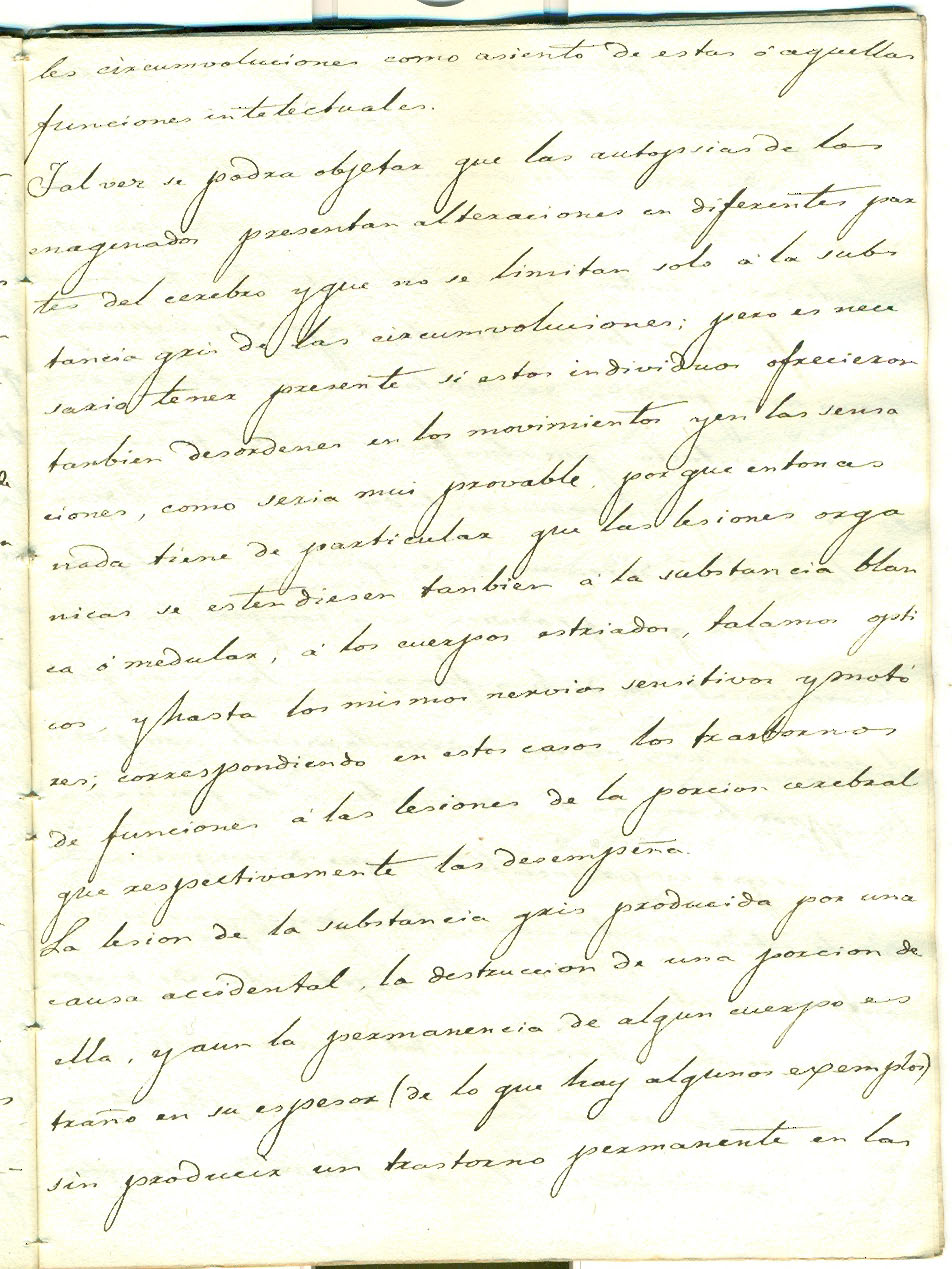 les circumvoluciones como asiento de estas ó aquellas
funciones intelectuales.
Tal vez se podra objetar que las autopsias de los
enagenados presentan alteraciones en diferentes par
tes del cerebro y que no se limitan solo á la subs
tancia gris de las circumvoluciones; pero es nece
sario tener presente si estos individuos ofrecieron
tanbien desordenes en los movimientos y en las sensa
ciones, como seria mui provable, porque entonces
nada tiene de particular que las lesiones orga
nicas se estendiesen tanbien á la substancia blan
ca ó medular, á los cuerpos estriados, talamos opti
cos, y hasta los mismos nervios sensitivos y moto
res; correspondiendo en estos casos los trastornos
de funciones á las lesiones de la porcion cerebral
que respectivamente las desempeña.
La lesion de la substancia gris producida por una
causa accidental, la destruccion de una porcion de
ella, y aun la permanencia de algun cuerpo es
traño en su espesor (de lo que hay algunos exemplos)
sin producir un trastorno permanente en las